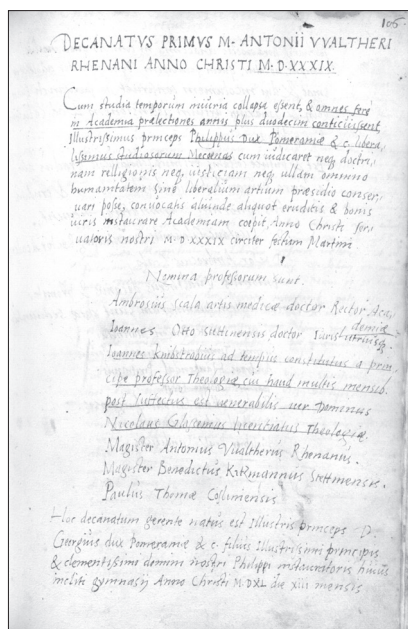 106
DECANATVS PRIMVS M. ANTONII VVALTHERI
RHENANI ANNO CHRISTI M.D.XXXIX.
Cum studia temporum iniuria collapsa essent, & omnes fere
in Academia prælectiones annis plus duodecim conticuissent
Illustrissimus princeps Philippus Dux Pomeraniæ & c. libera,
lissimus studiosorum Mecenas cum iudicaret neq, doctri,
nam religionis neq, iusticiam neq, ullam omnino
humanitatem sine liberalium artium præsidio conser,
uari posse, conuocatis aliunde aliquot eruditis & bonis
uiris instaurare Academiam coepit, Anno Christi ser,
uatoris nostri M D XXXIX circiter festum Martini
Nomina professorum sunt.
Ambrosius scala artis medicæ doctor Rector Aca,
demiæ
Ioannes Otto sittinensis doctor Iuris utriusq.
Ioannes Knibstrobius ad tempus constitutus a prin,
cipe professor Theologiæ, cui haud multis mensib.
post suffectus est uenerabilis uer Dominus
Nicolaus Glossenus licentiatus Theologiæ.
Magister Antonius Vualtherus Rhenanus.
Magister Benedictus Stettinensis.
Paulus Thomæ Coslinensis
Hoc decanatum gerente natus est Illustris princeps D.
Georgius dux Pomeraniæ & c. filius Illustrissimi principis
& clementissimi domini nostri Philippi instauratoris huius
incliti gymnasij Anno Christi M.D.XL die XIII mensis